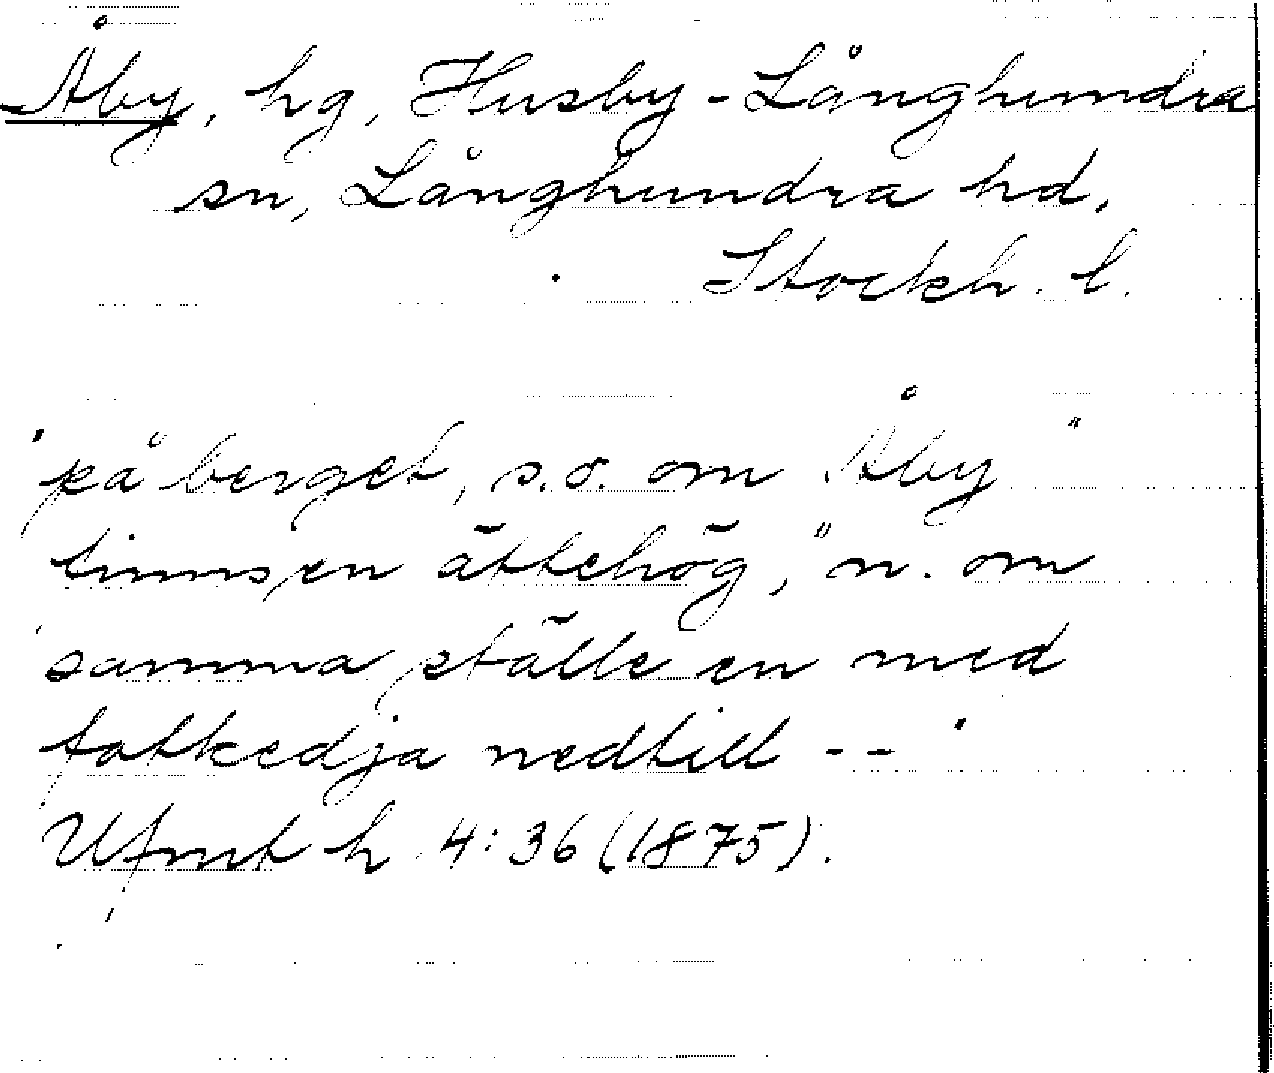 Åby, hg, Husby-Långhundra
sn, Långhundra hd,
Stockh. l.
"på berget, s.ö. om Åby"
"finns en ättehög," n. om
samma ställe en med
fotkedja nedtill -- "
Ufmt h 4:36 (1875).